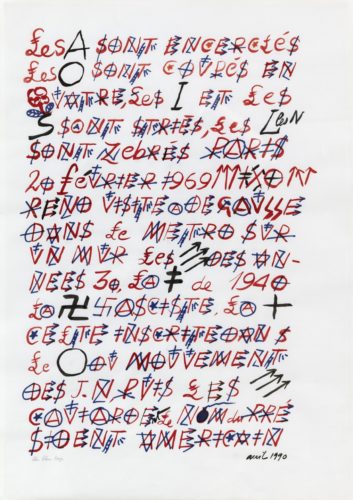 LES A SONT ENCERCLÉS
LES O SONT COUPÉS EN
QUATRE, LES I ET LES
S SONT STRIÉS, LES
SONT ZEBRÉS PARIS
28 FÉVRIER 1969 NIXON
REND VISITE A DE GAULLE
DANS LE METRO SUR
UN MUR LES DES AN-
NÉES 30, LA ‡ de 1940
LA 卍 FASCISTE, LA +
CELTE INSCRITE DANS
LE O DU MOUVEMENT
DES J.N PUIS LES
CAVIARDE le NOM du PRÉ
SIDENT AMERICAIN
avril 1990